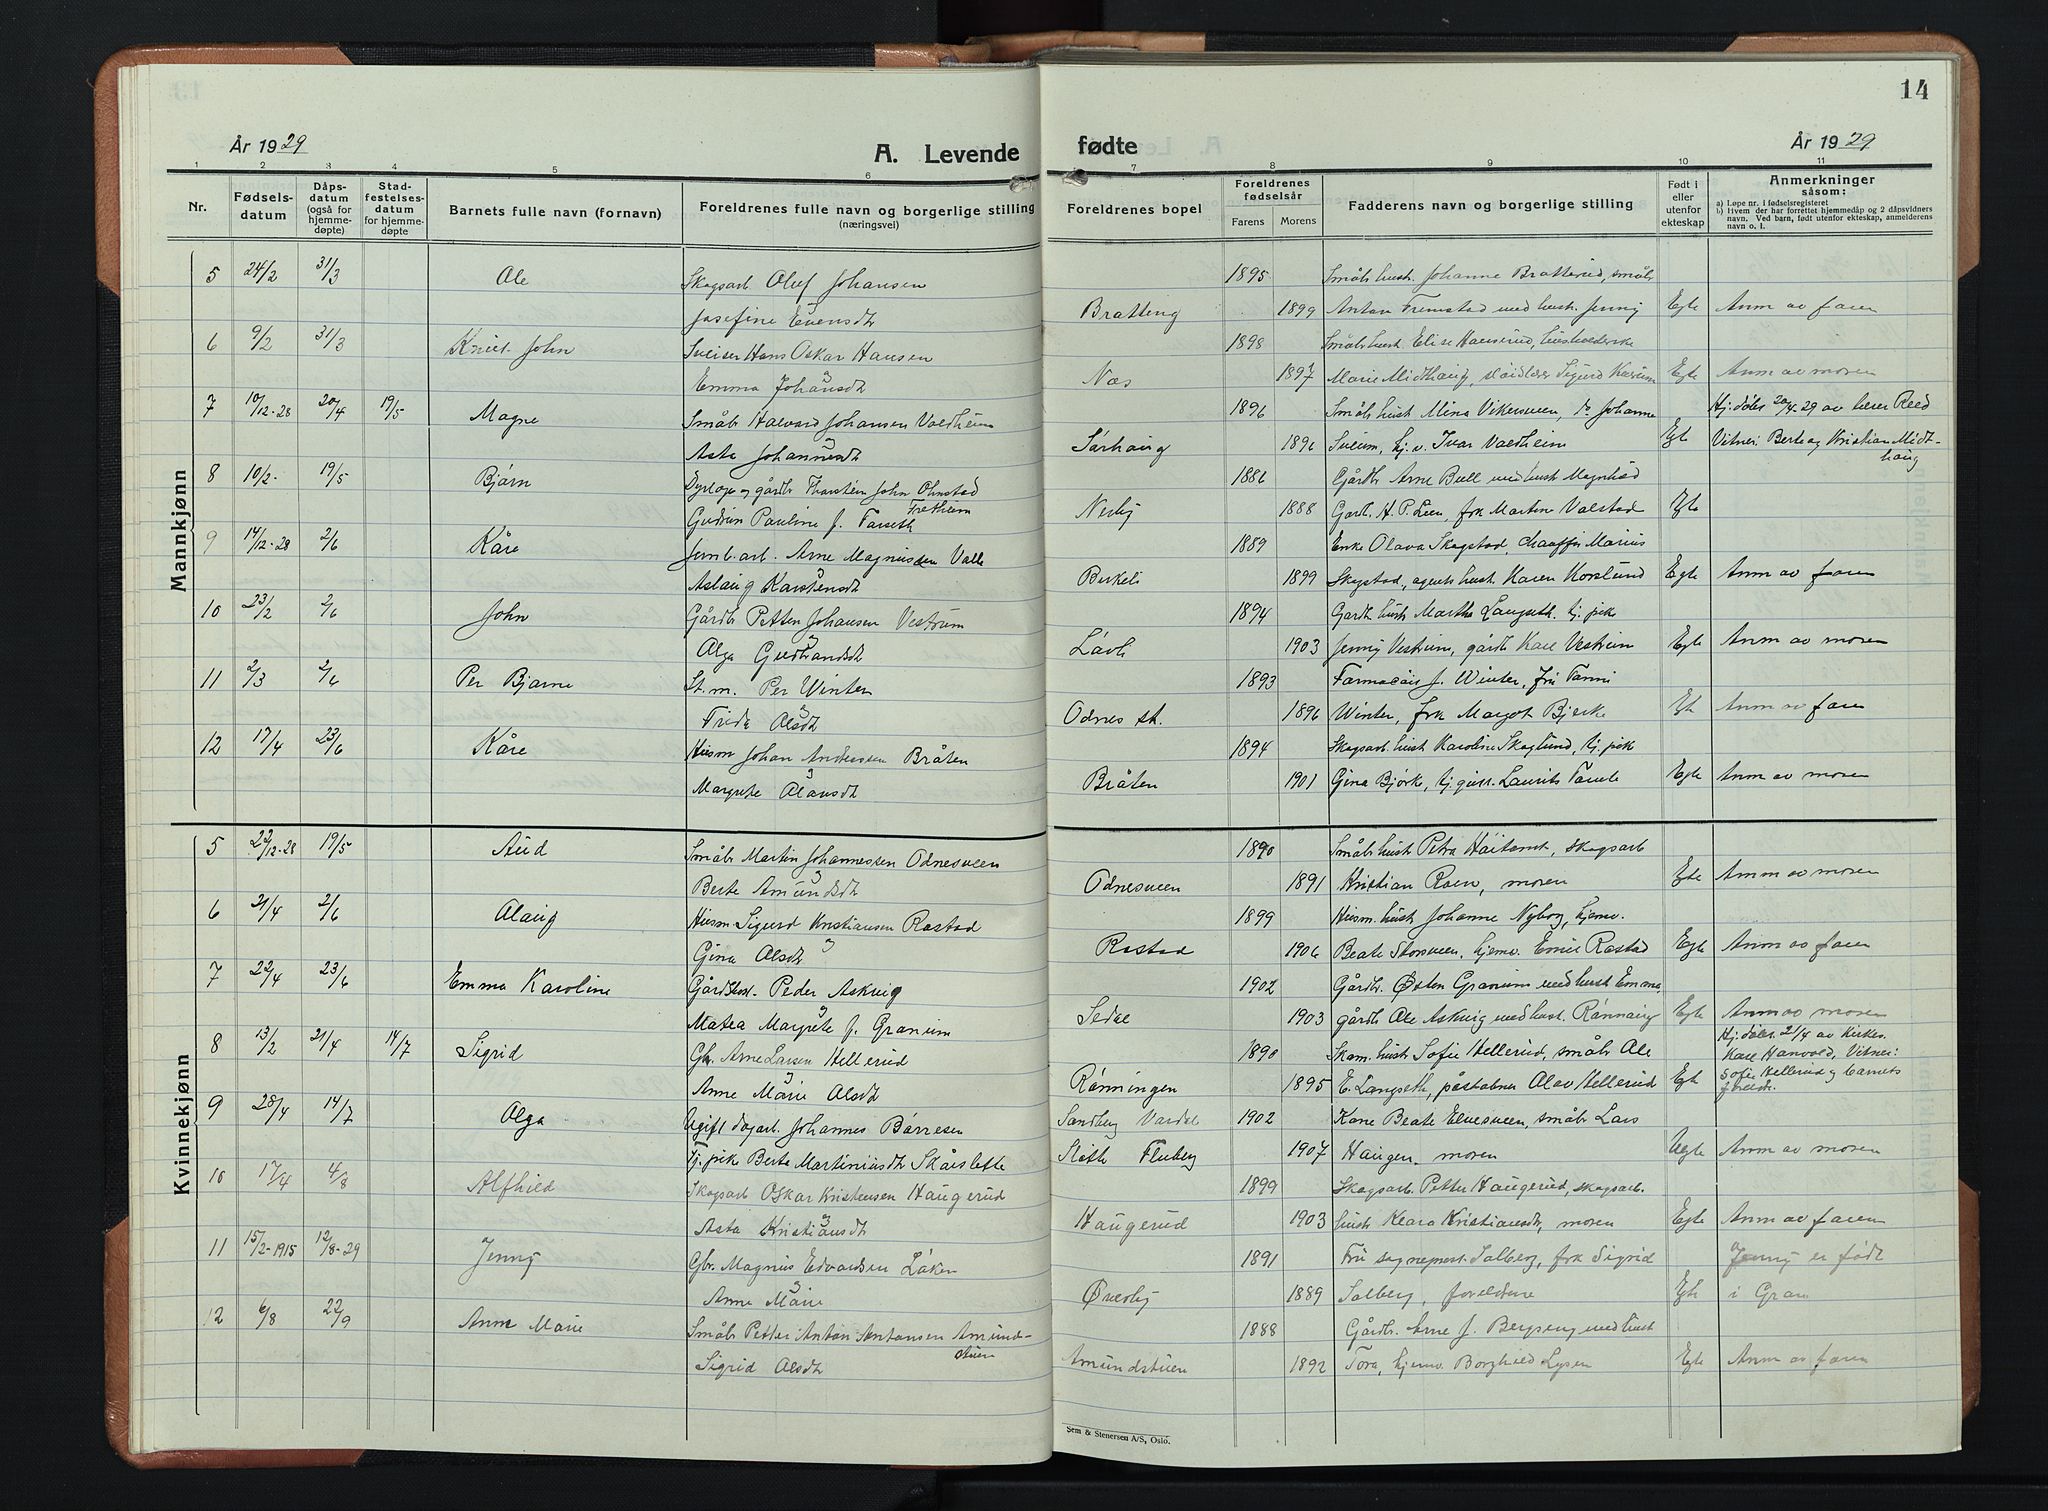 14
År 1929
A. Levende
fødte
År 1929
1 2 3 4 5 6 7 8 9 10 11
Nr. Fødselsdatum Dåpsdatum (også for hjemmedøpte) Stadfestelsesdatum for hjemmedøpte Barnets fulle navn (fornavn) Foreldrenes fulle navn og borgerlige stilling (næringsvei) Foreldrenes bopel Foreldrenes fødselsår Farens Morens Fadderens navn og borgerlige stilling Født i eller utenfor ekteskap Anmerkninger såsom:
a) Løpe nr. i fødselsregisteret
b) Hvem der har forrettet hjemmedåp og 2 dåpsvidners navn. Ved barn, født utenfor ekteskap, anmelderens navn o. l.
Mannkjønn
5 24/2 31/3 Ole Skogsarb Oluf Johansen 1895 Småbr hust. Johanne Bratterud, småbr
Josefine Evensdt Bratteng 1899 Anton Fremstad med hust. Jenny Egte Anm av faren
6 9/2 31/3 Knut John Sveiser Hans Oskar Hansen 1898 Småbr hust. Elise Haugerud,
Emma Johansdt Næs 1897 Marie Midthaug, Sigurd Egte Anm av moren
7 10/12-28 20/4 19/5 Magne Småbr Halvard Johansen Valdheim 1896 Småbr hust Mina Vikersveen, do Johanne Hj.døbt 20/4-29 av lærer Reed
Asta Johannesdt Sørhaug 1896 Sveum, hj. v. Ivar Valdheim Egte Vitner: Berte og Kristian Midthaug
8 10/2 19/5 Bjørn Dyrlæge og gårdbr Thorstein John Ohnstad 1886 Gårdbr Arne Bull med hust Magnhild
Gudrun Pauline f. Tarseth Fretheim Nerby 1888 Gardb. H. P. Lien, frk Martine Valstad Egte
9 14/12-28 2/6 Kåre Jernb.arb. Arne Magnussen Valle 1889 Enke Olava Skogstad, chauffør Marius
Aslaug Karstensdt Birkeli 1899 Skogstad, agents hust Karen Horslund Egte Anm av faren
10 23/2 2/6 John Gårdbr Petter Johansen Vestrum 1894 Gardb hust Marthe Langseth, tj. pike
Olga Gudbrandsdt Låvli 1903 Jenny Vestrum, gårdb Karl Vestrum Egte Anm av moren
11 2/3 2/6 Per Bjarne St. m. Per Winter 1893 Farmacöit J. Winter, fru Fanni
Frida Olsdt Odnes st. 1896 Winter, frk Margot Bjerke Egte Anm av faren
12 17/4 23/6 Kåre Husm Johan Andersen Bråten 1894 Skogsarb hust Karoline Skoglund, tj. pike
Margrete Olausdt Bråten 1901 Gina Bjørke, tj. gutt. Laurits Egte Anm av moren
Kvinnekjønn
5 22/12-28 19/5 Aud Småbr Martin Johannessen Odnesveen 1890 Småbr hust Petra Høitomt, skogsarb
Berte Amundsdt Odnesveen 1891 Kristian Roen, moren Egte Anm av moren
6 21/4 2/6 Olaug Husm Sigurd Kristiansen Rostad 1899 Husm. hust Johanne Nyborg, hjemv.
Gina Olsdt Rostad 1906 Beate Storsveen, hjemv. Emil Rostad Egte Anm av faren
7 22/4 23/6 Emma Karoline Gårdbest. Peder Askvig 1902 Gårdb. Østen Granum med hust Emma,
Matea Margrete f. Granum Sedal 1903 gårdb Ole Askvig med hust. Rønnaug Egte Anm av moren
8 13/2 21/4 14/7 Sigrid Gbr. Arne Larsen Hellerud 1890 Skom. hust Sofie Hellerud, småbr Ole Hj. døbt 21/4 av kirkes.
Anne Marie Olsdt Rønningen 1895 E. Langseth, poståbner Olav Hellerud Egte Karl Hanvold, Vitner: Sofie Hellerud og barnets foreldr.
9 28/4 14/7 Olga Ugift dagarb. Johannes Børresen Sandberg Vardal 1902 Kone Beate Elvesveen, småbr Lars
Tj. pike Berte Martiniusdt Skårslette Fluberg 1907 Haugen, moren Uegte Anm av moren
10 17/4 4/8 Alfhild Skogsarb Oskar Kristensen Haugerud 1899 Skogsarb. Petter Haugerud, skogsarb.
Asta Kristiansdt Haugerud 1903 hust Klara Kristiansdt, moren Egte Anm av faren
11 15/2-1915 12/8-29 Jenny Gbr. Magnus Edvardsen Løken 1891 Fru sogneprest Solberg, frk Sigrid Jenny er født
Anne Marie Øverby 1889 Solberg, foreldrene Egte i Gran
12 6/8 22/9 Anne Marie Småbr Petter Anton Antonsen Amundstuen 1888 Gårdbr. Arne J. Bergseng med hust
Sigrid Olsdt Amundstuen 1892 Tora, hjemv. Borghild Lysen Egte Anm av faren
Sem & Stenersen A/S, Oslo.